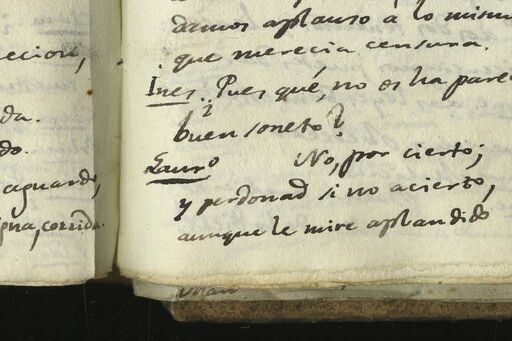 ecion,
da.
do.
aguarda,
gna, corrida.
damos aplauso à lo mism
que merecia censura.
Ines.. Pues qué, no os ha pare
buen soneto?
Laurº No, por cierto;
y perdonad si no acierto,
aunque le mire aplaudido